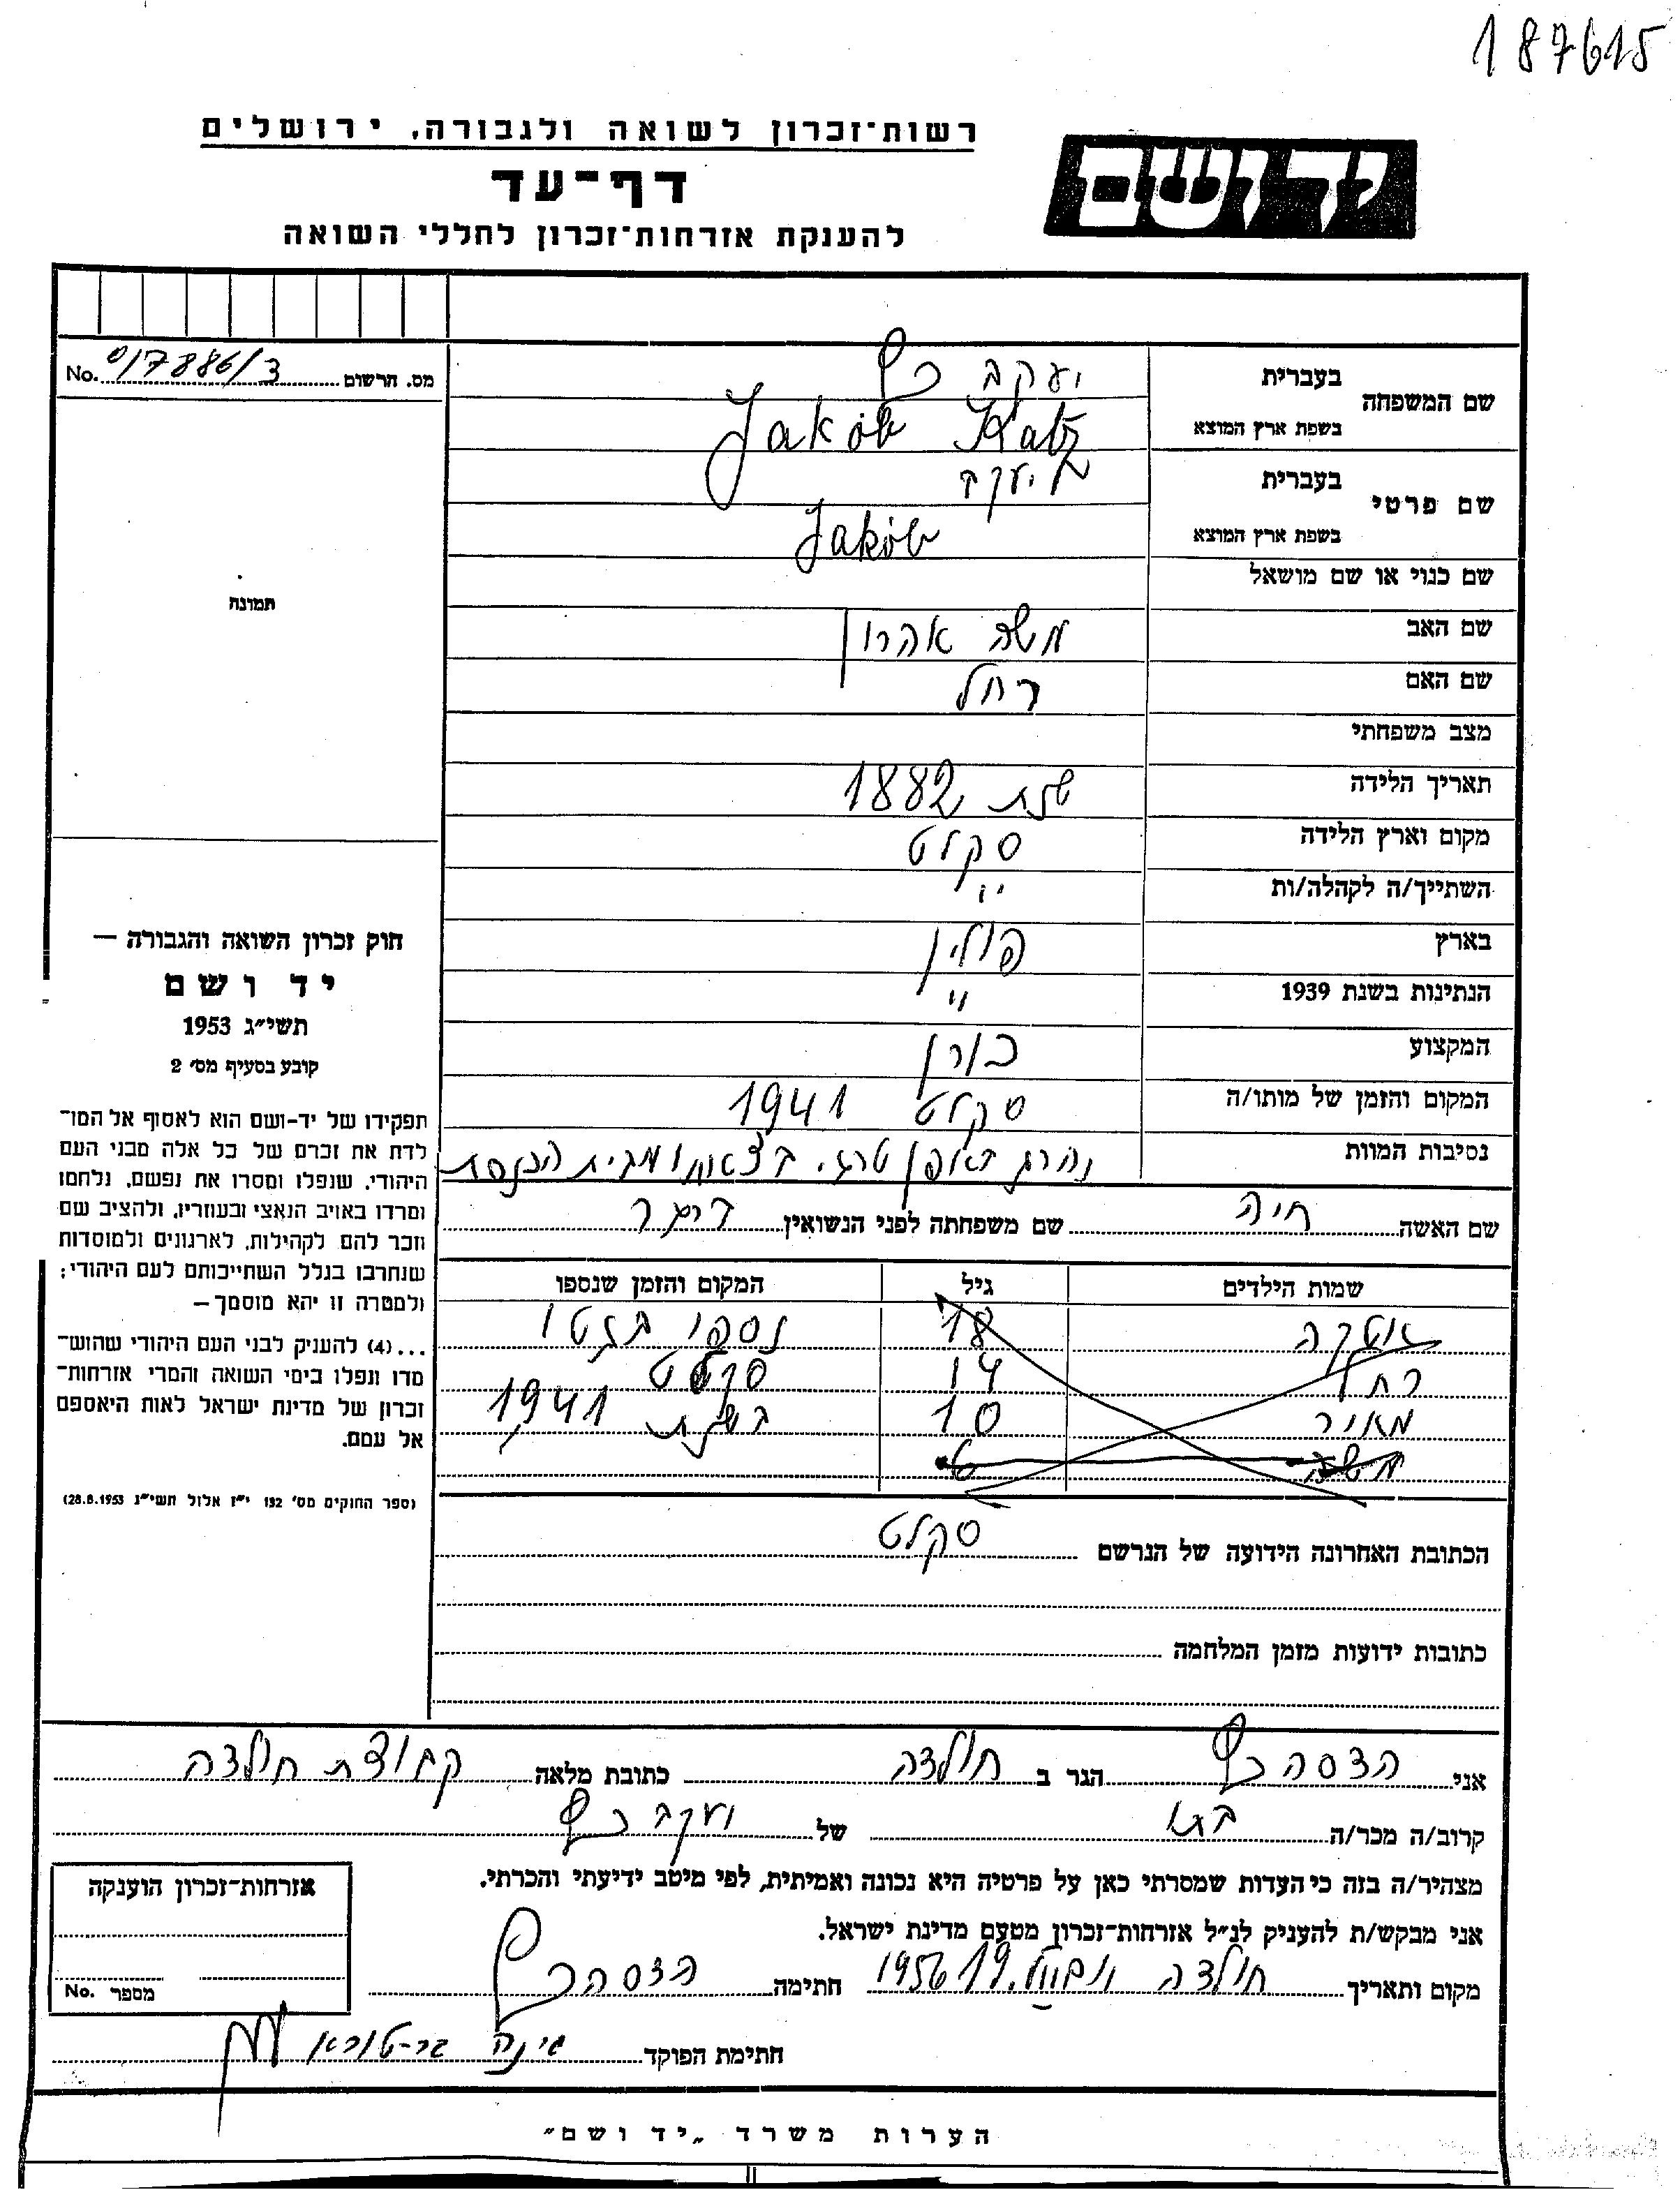 187615
רשות־זכרון לשואה ולגבורה, ירושלים
יד ושם
דף־עד
להענקת אזרחות־זכרון לחללי השואה
מס. הרשום No. 017886/3
תמונה
חוק זכרון השואה והגבורה —
יד ושם
תשי״ג 1953
קובע בסעיף מס׳ 2
תפקידו של יד-ושם הוא לאסוף אל המו־
לדת את זכרם של כל אלה מבני העם
היהודי, שנפלו ומסרו את נפשם, נלחמו
ומרדו באויב הנאצי ובעוזריו, ולהציב שם
וזכר להם לקהילות, לארגונים ולמוסדות
שנחרבו בגלל השתייכותם לעם היהודי;
ולמטרה זו יהא מוסמך—
...(4) להעניק לבני העם היהודי שהוש־
מדו ונפלו בימי השואה והמרי אזרחות־
זכרון של מדינת ישראל לאות היאספם
אל עמם.
(ספר החוקים מס׳ 132 י״ז אלול תשי״ג 28.8.1953)
שם המשפחה בעברית יעקב כץ
בשפת ארץ המוצא Jakób Katz
שם פרטי בעברית יעקב
בשפת ארץ המוצא Jakób
שם כנוי או שם מושאל
שם האב משה אהרון
שם האם רחל
מצב משפחתי
תאריך הלידה שנת 1882
מקום וארץ הלידה סקלט
השתייך/ה לקהלה/ות ״
בארץ פולין
הנתינות בשנת 1939 ״
המקצוע
המקום והזמן של מותו/ה סקלט 1941
נסיבות המוות נהרג באופן טרגי בצאתו מבית הכנסת
שם האשה חיה שם משפחתה לפני הנשואין
שמות הילדים גיל המקום והזמן שנספו
אטקה 18 נספו בגטו
רחל 14 סקלט
מאיר 10 בשנת 1941
משה 6
הכתובת האחרונה הידועה של הנרשם סקלט
כתובות ידועות מזמן המלחמה
אני הדסה כץ הגר ב חולדה כתובת מלאה קבוצת חולדה
קרוב/ה מכר/ה בתו של יעקב כץ
מצהיר/ה בזה כי העדות שמסרתי כאן על פרטיה היא נכונה ואמיתית, לפי מיטב ידיעתי והכרתי.
אני מבקש/ת להעניק לנ״ל אזרחות־זכרון מטעם מדינת ישראל.
מקום ותאריך חולדה 19 1956 חתימה הדסה כץ
חתימת הפוקד
אזרחות־זכרון הוענקה
מספר No.
הערות משרד „יד ושם״